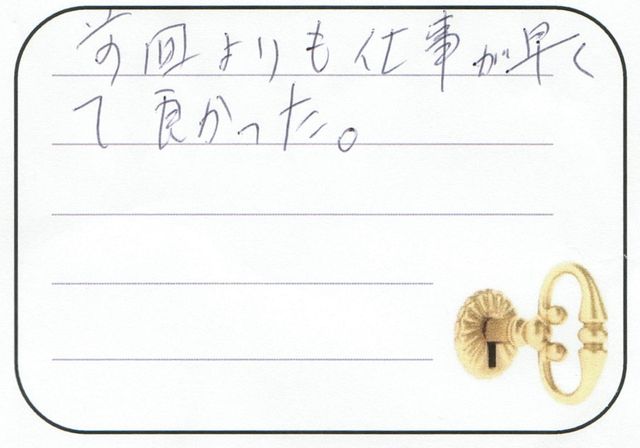 前回よりも仕事が早く
て良かった。